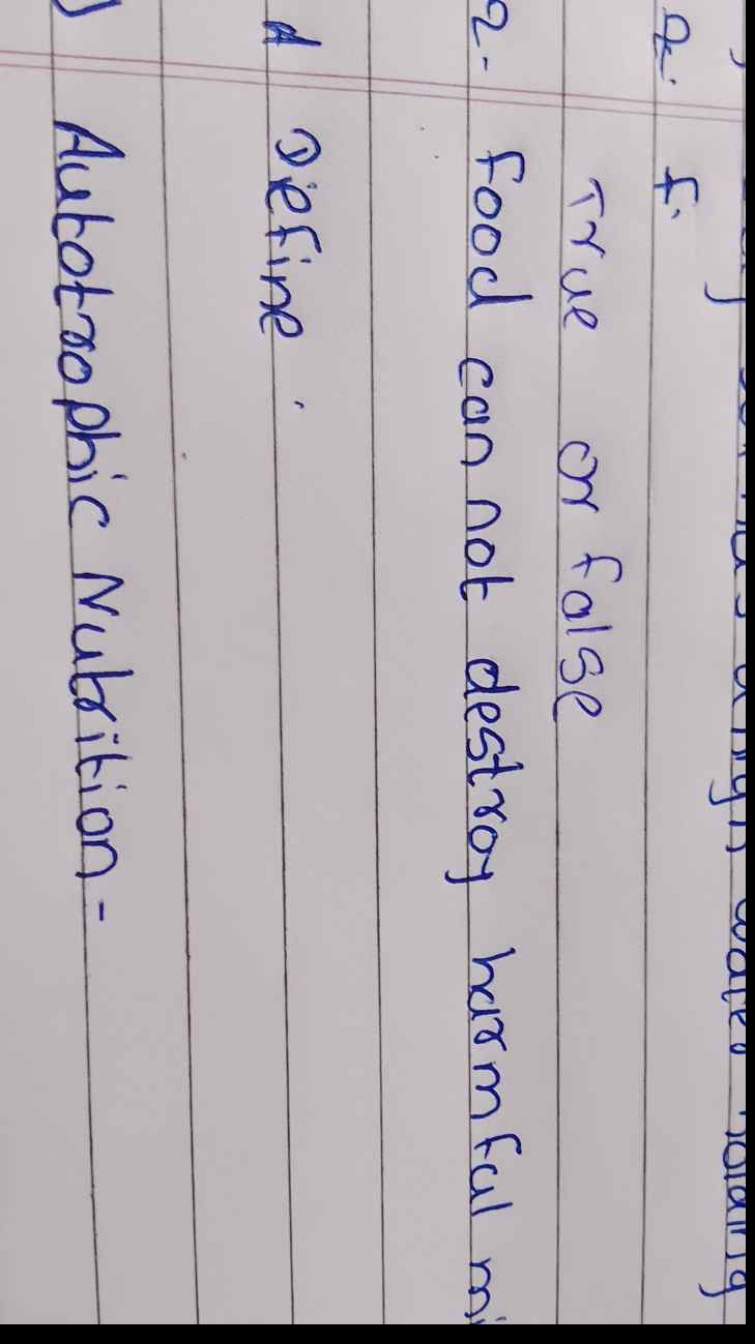 water holding
Q. f.
True or false
2- food can not destroy harmful mi
d Define
) Autotrophic Nutrition -